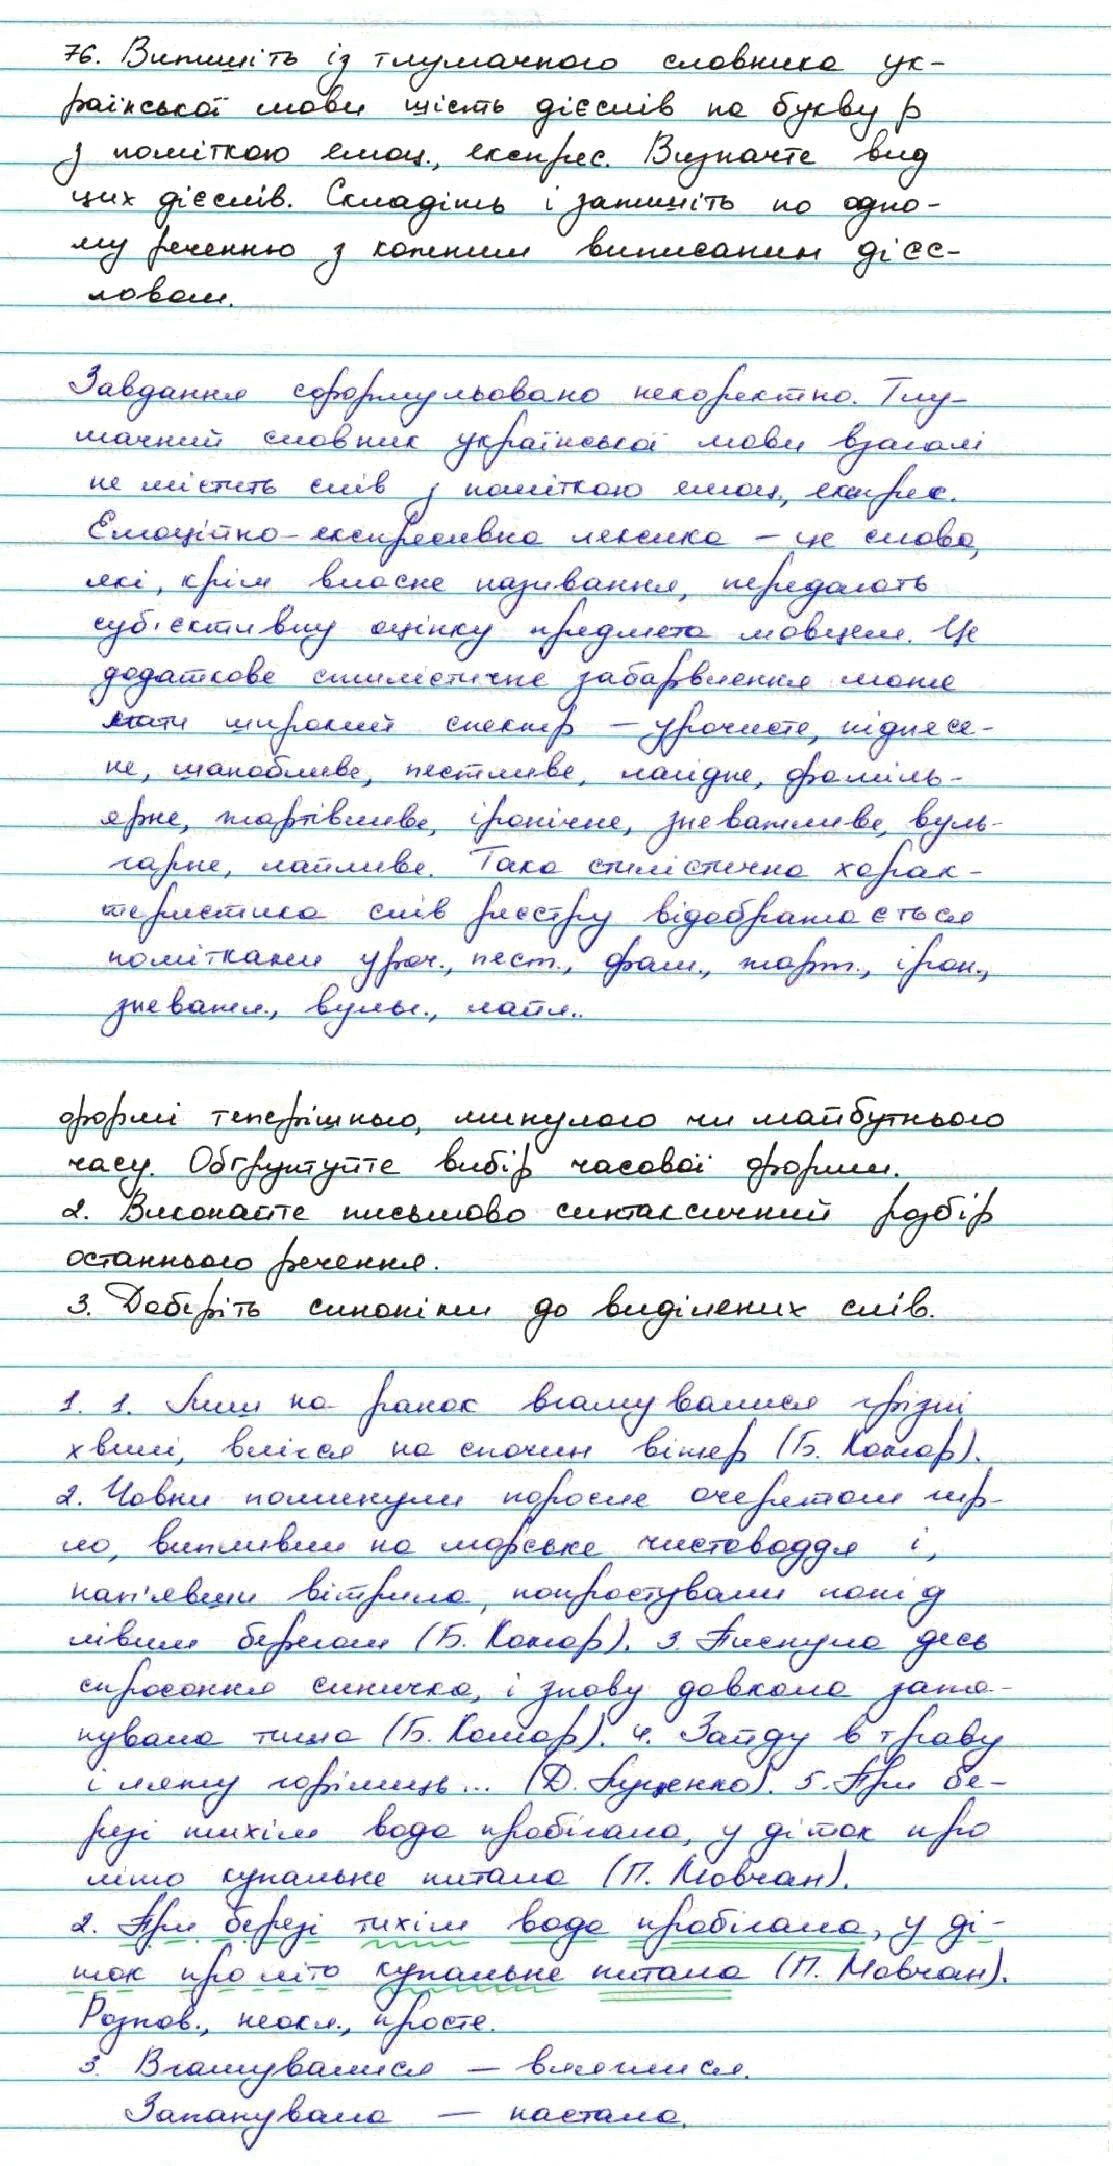 76. Випишіть із тлумачного словника ук-
раїнської мови шість дієслів на букву р
з поміткою емоц., експрес. Визначте вид
цих дієслів. Складіть і запишіть по одно-
му реченню з кожним виписаним дієс-
ловом.
Завдання сформульовано некоректно. Тлу-
мачний словник української мови взагалі
не містить слів з поміткою емоц., експрес.
Емоційно-експресивна лексика – це слова,
які, крім власне називання, передають
суб'єктивну оцінку предмета мовцем. Це
додаткове стилістичне забарвлення може
мати широкий спектр – урочисте, піднесе-
не, шанобливе, пестливе, лагідне, фаміль-
ярне, жартівливе, іронічне, зневажливе, вуль-
гарне, лайливе. Така стилістична харак-
теристика слів реєстру відображається
помітками уроч., пест., фам., жарт., ірон.,
зневажл., вульг., лайл..
формі теперішнього, минулого чи майбутнього
часу. Обґрунтуйте вибір часової форми.
2. Виконайте письмово синтаксичний розбір
останнього речення.
3. Доберіть синоніми до виділених слів.
1. 1. Лиш на ранок вгамувалися грізні
хвилі, влігся на спочин вітер (Б. Комар).
2. Човни поминули поросле очеретом гир-
ло, випливши на морське чистоводдя і,
нап'явши вітрила, попростували понід
лівим берегом (Б. Комар). 3. Писнула десь
спросоння синичка, і знову довкола запа-
нувала тиша (Б. Комар). 4. Зайду в траву
і ляжу горілиць... (Д. Луценко). 5. При бе-
резі тихім вода пробігала, у діток про
літо купальне питала (П. Мовчан).
2. При березі тихім вода пробігала, у ді-
ток про літо купальне питала (П. Мовчан).
Розпов., неокл., просте.
3. Вгамувалися – вляглися.
Запанувала – настала.